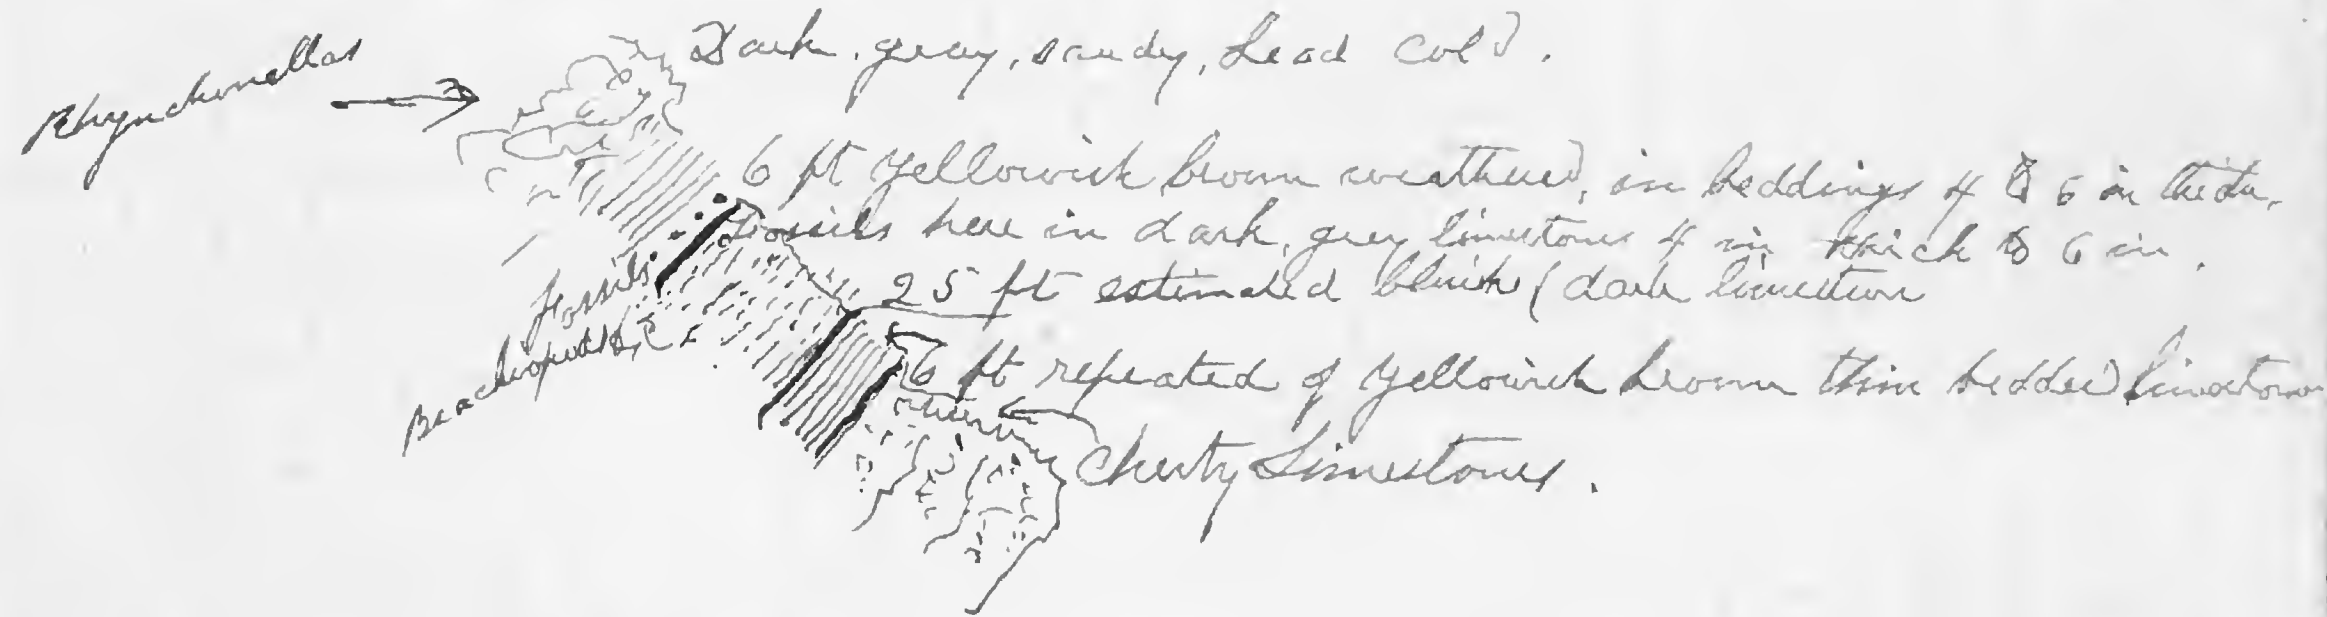 Rhynchonellas
Dark, gray, sandy, Lead Col'd.
6 ft yellowish brown weathered, in beddings 4 to 6 in
Fossils here in dark, grey limestones 4 in thick to 6 in.
25 ft estimated bluish (dark limestone
Fossils
Brachiopods
6 ft repeated of yellowish brown thin bedded limestone
Cherty Limestones.